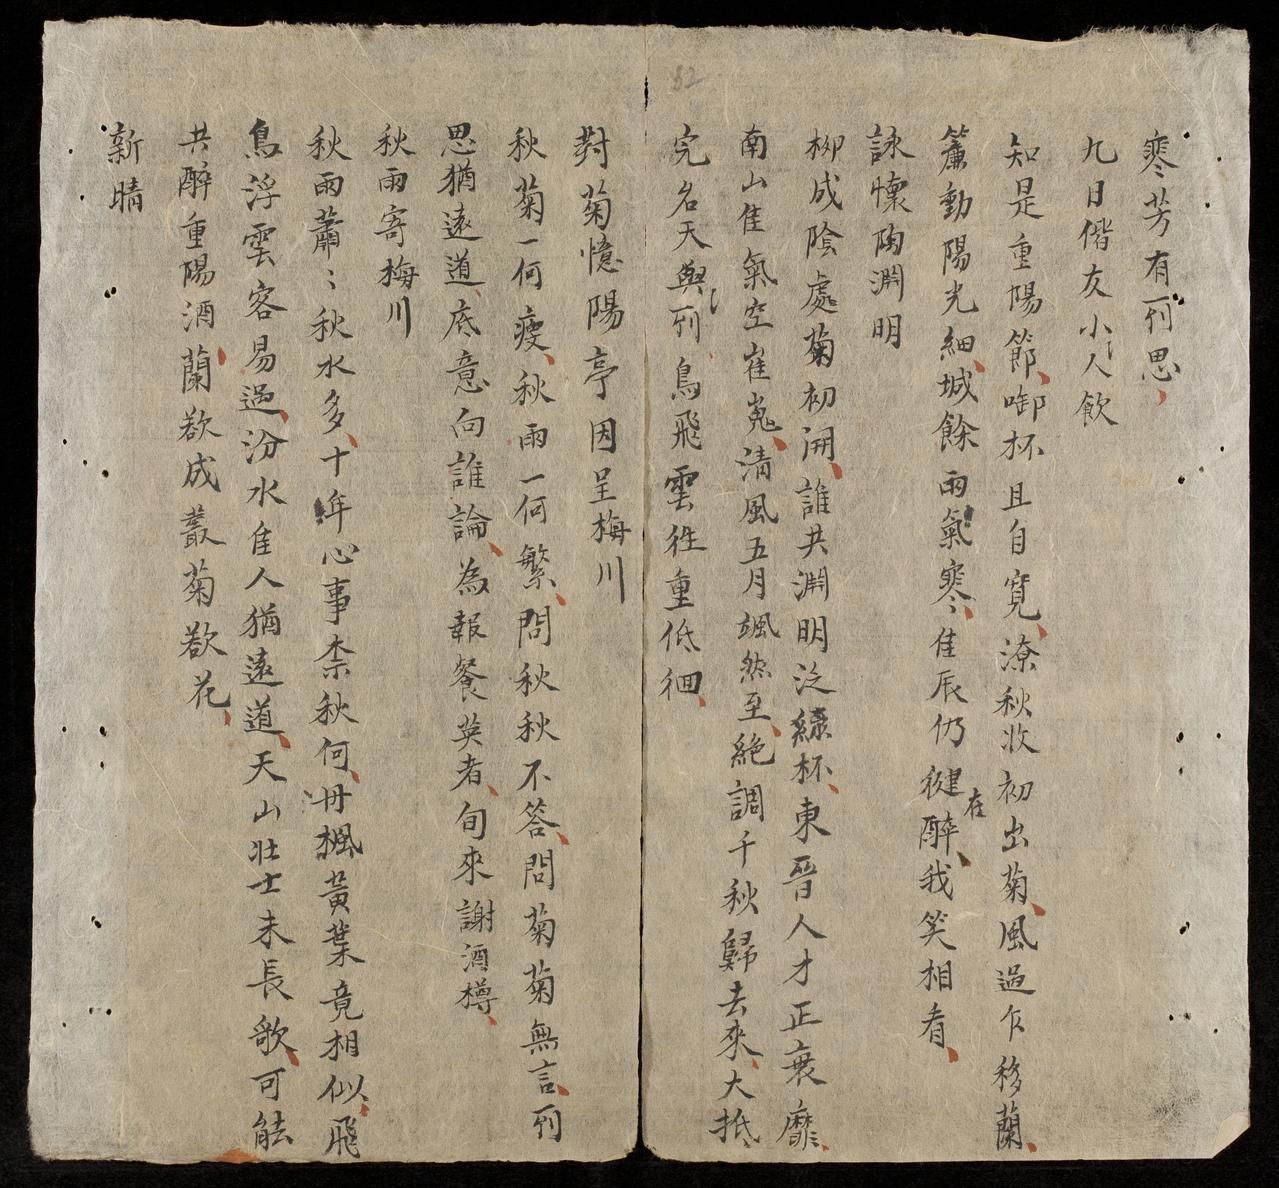 寒芳有所思
九日偕友小人飲
知是重陽節啣杯且自寬潦秋收初出菊風過乍移蘭
簾動陽光細城餘雨氣寒佳辰仍健在醉我笑相看
詠懷陶淵明
柳成陰處菊初開誰共淵明泛綠杯東晉人才正衰靡
南山隹氣空崔嵬清風五月颯然至絕調千秋歸去來大抵
完名天與所鳥飛雲徃重低徊
對菊憶陽亭因呈梅川
秋菊一何瘦秋雨一何繁問秋秋不答問菊菊無言所
思猶遠道底意向誰論為報餐英者旬來謝酒樽
秋雨寄梅川
秋雨蕭〻秋水多十年心事柰秋何丹楓黃葉竟相似飛
鳥浮雲客易過汾水隹人猶遠道天山壯士未長歌可能
共醉重陽酒蘭欲成叢菊欲花
新晴